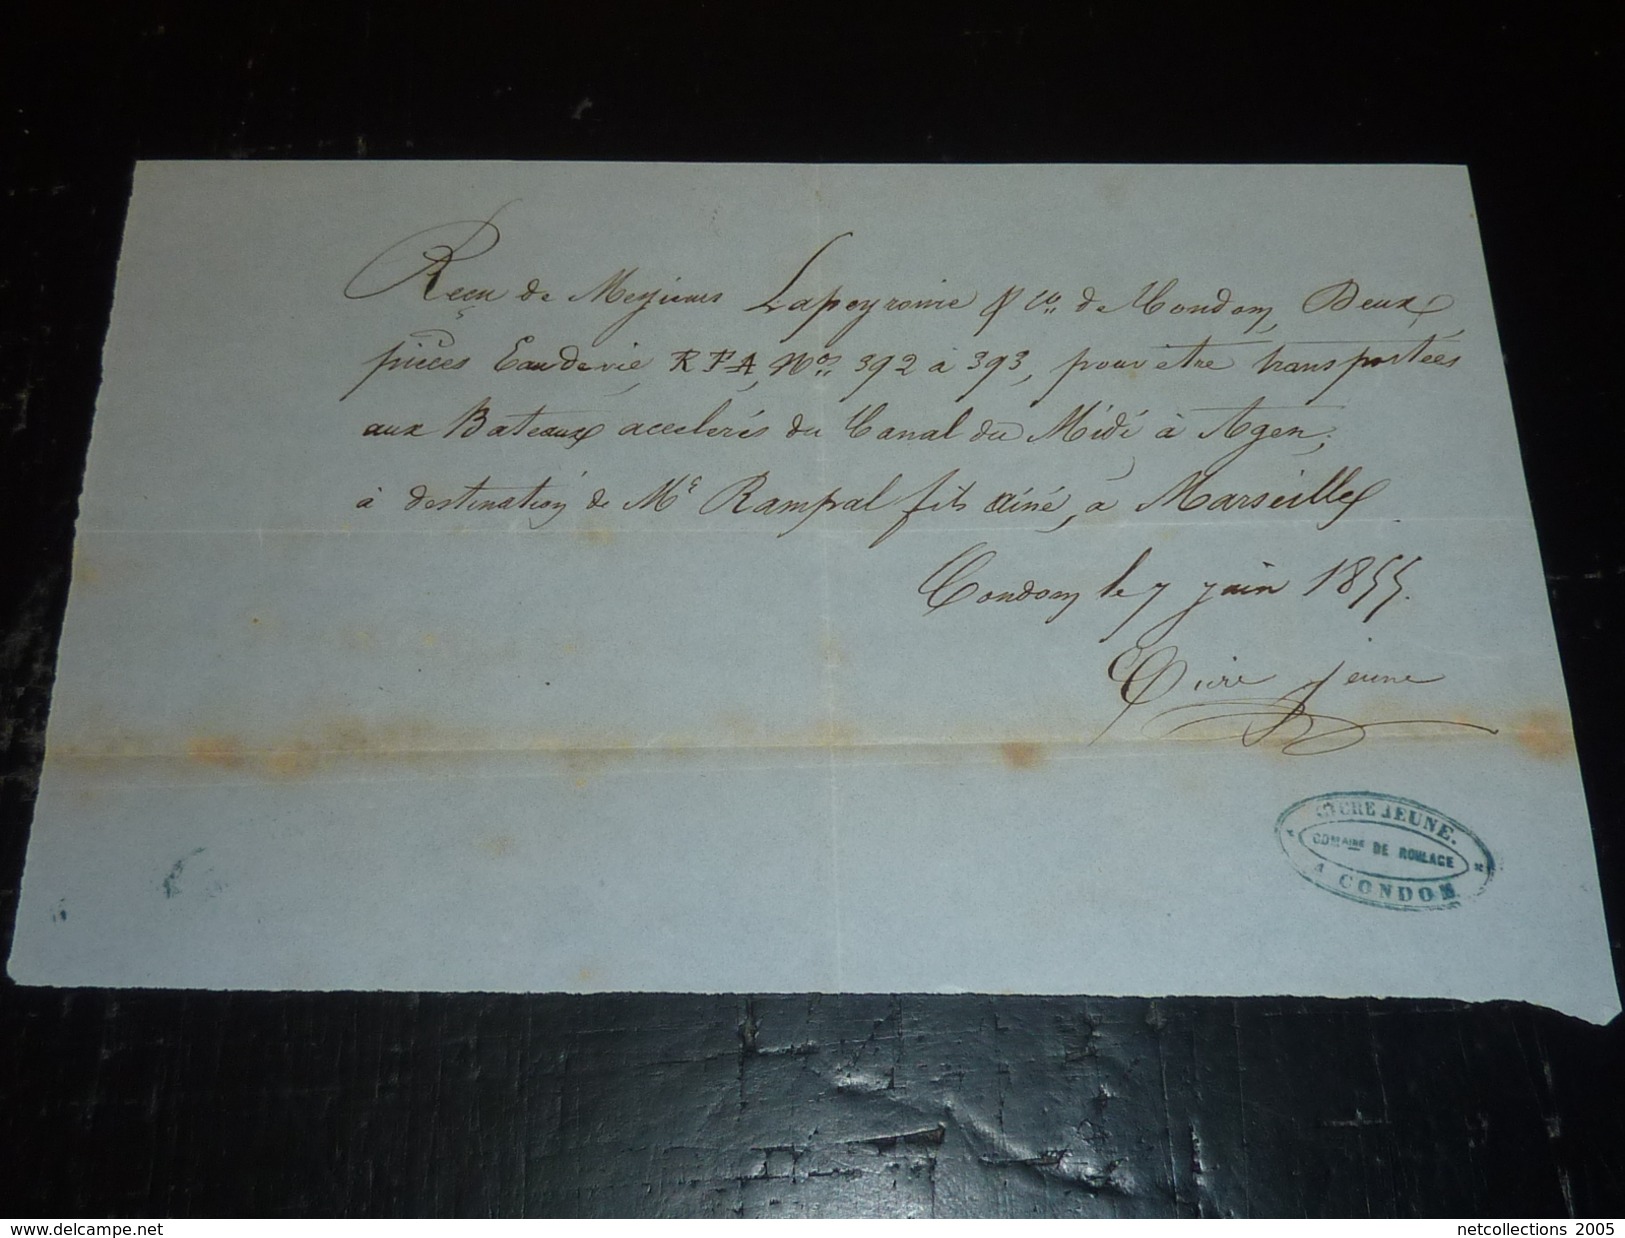 Reçu de Messieurs Lapeyronie & Co. de Condom, Deux
pièces Eau de vie, R F A, Nos. 392 à 393, pour être transportées
aux Bateaux accelerés du Canal du Midi à Agen,
à destination de Mr. Rampal fils ainé, à Marseille.
Condom le 7 juin 1855.
jeune
JEUNE.
COMAIRE DE ROULAGE
A CONDOM
www.delcampe.net
netcollections 2005